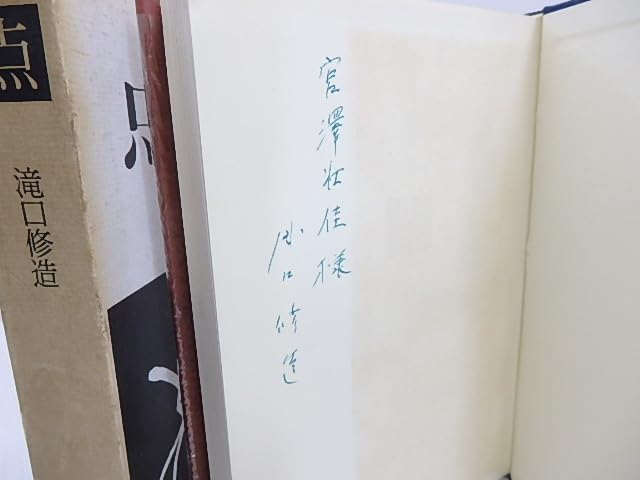 点
滝口修造
点
宮澤壮佳様
滝口修造